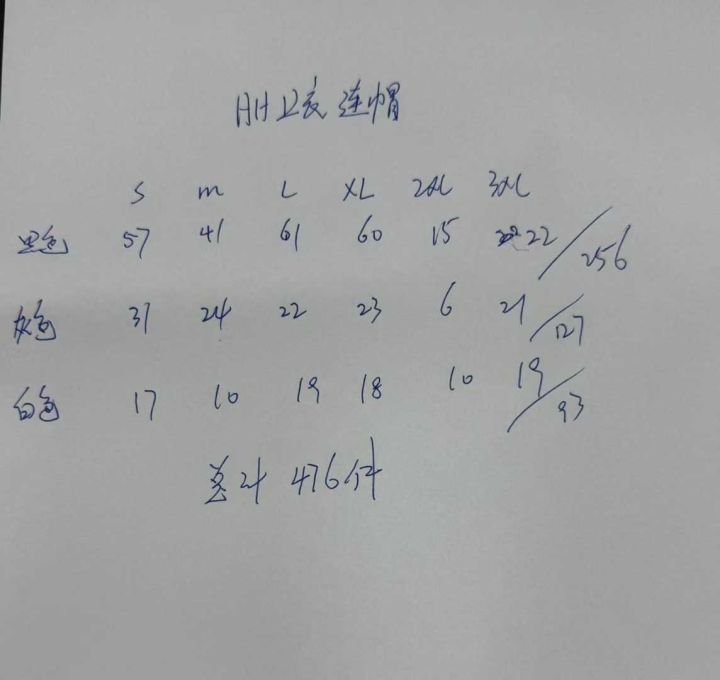 HH卫衣连帽
S m L XL 2XL 3XL
黑色 57 41 61 60 15 22/256
灰色 31 24 22 23 6 21/127
白色 17 10 19 18 10 19/93
总计 476件